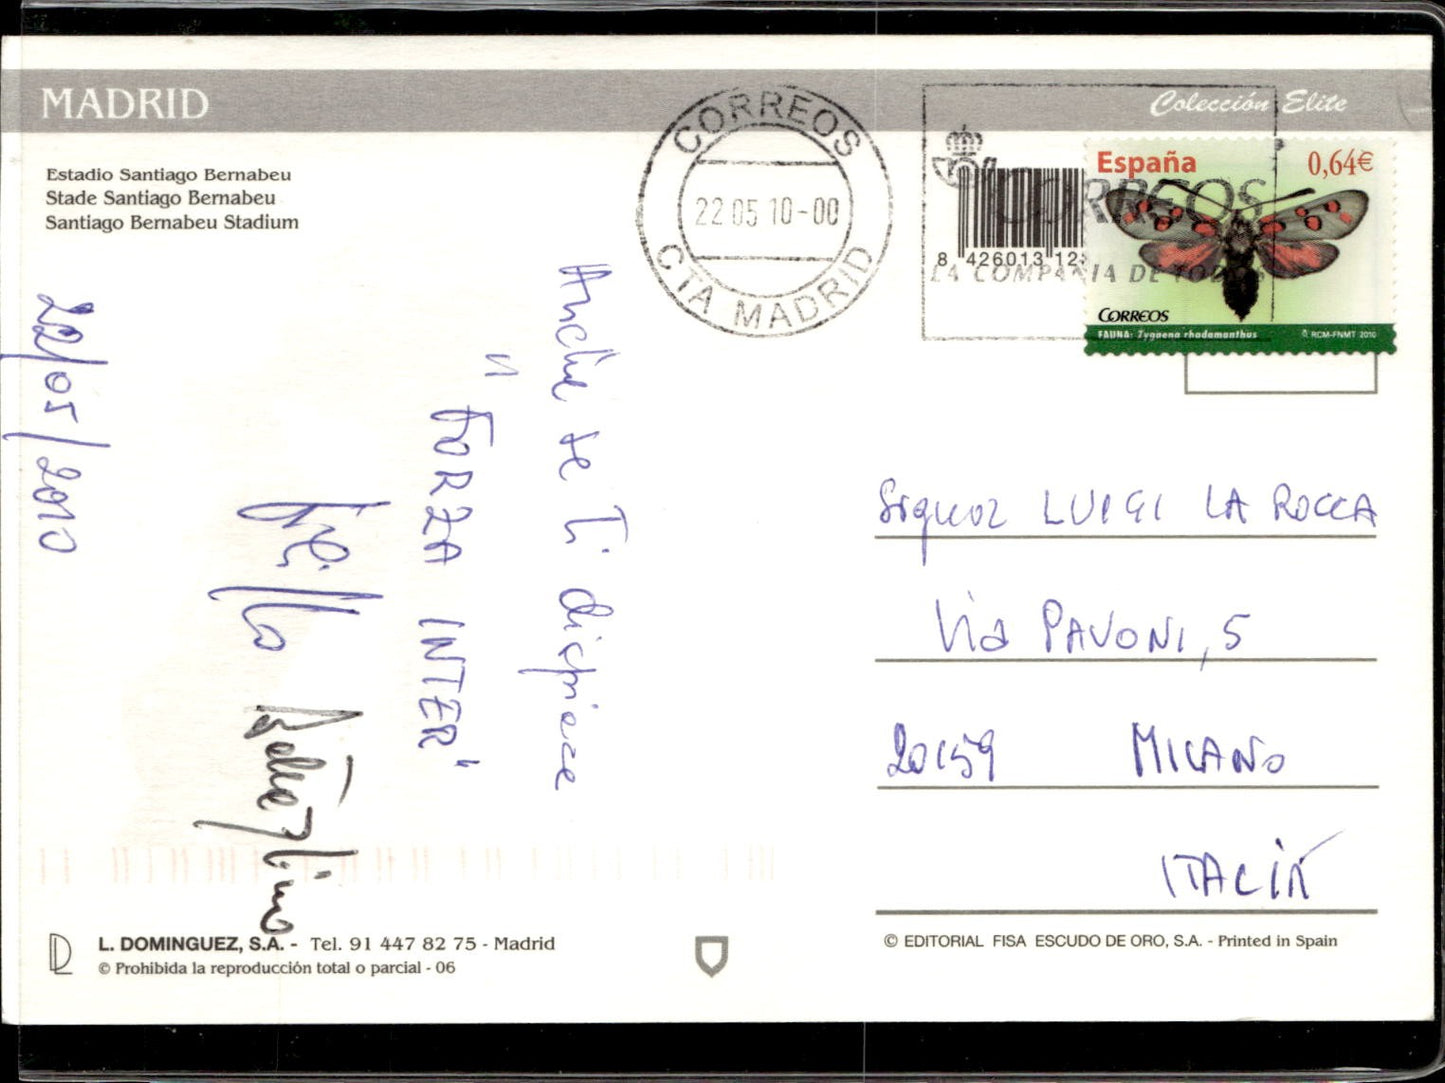 MADRID
Colección Elite
Estadio Santiago Bernabeu
Stade Santiago Bernabeu
Santiago Bernabeu Stadium
CORREOS
22 05 10-00
CTA MADRID
CORREOS
LA COMPAÑIA DE TODOS
8 426013 12
España 0,64€
CORREOS
FAUNA: Zygaena rhadamanthus RCM-FNMT 2010
Anche se ti dispiace
"FORZA INTER"
22/05/2010
Signor LUIGI LA ROCCA
Via PAVONI, 5
20159 MILANO
ITALIA
L. DOMINGUEZ, S.A. - Tel. 91 447 82 75 - Madrid
© Prohibida la reproducción total o parcial - 06
© EDITORIAL FISA ESCUDO DE ORO, S.A. - Printed in Spain